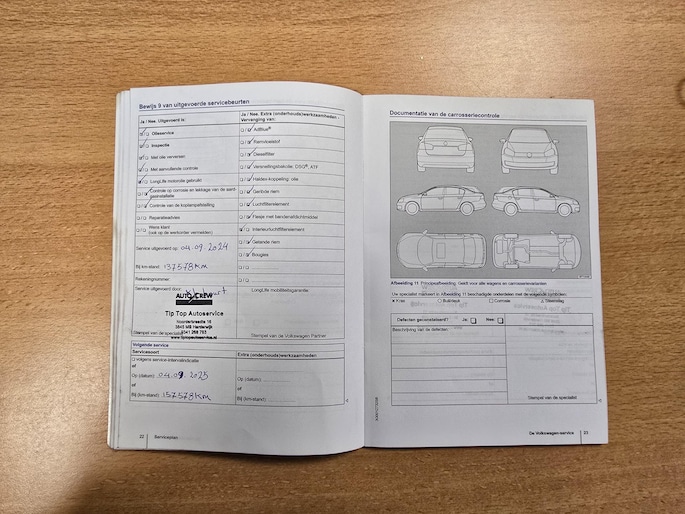 Bewijs 9 van uitgevoerde servicebeurten
Ja / Nee. Uitgevoerd is:
Olieservice
Inspectie
Met olie verversen
Met aanvullende controle
LongLife motorolie gebruikt
Controle op corrosie en lekkage van de aard-
gasinstallatie
Controle van de koplampafstelling
Reparatieadvies
Wens klant
(ook op de werkorder vermelden)
Service uitgevoerd op: 04.09.2024
Bij km-stand: 137578 KM
Rekeningnummer:
Service uitgevoerd door:
AUTO CREW
Tip Top Autoservice
0341
www.tiptopautoservice.nl
Stempel van de specialist
Ja / Nee. Extra (onderhouds)werkzaamheden -
Vervanging van:
AdBlue®
Remvloeistof
Dieselfilter
Versnellingsbakolie: DSG®, ATF
Haldex-koppeling: olie
Geribde riem
Luchtfilterelement
Flesje met bandenafdichtmiddel
Interieurluchtfilterelement
Getande riem
Bougies
LongLife mobiliteitsgarantie:
Stempel van de Volkswagen Partner
Volgende service
Servicesoort
volgens service-intervalindicatie
of
Op (datum): 04.09.2025
of
Bij (km-stand): 157578 KM
Extra (onderhouds)werkzaamheden
Op (datum):
of
Bij (km-stand):
22 Serviceplan
Documentatie van de carrosseriecontrole
Afbeelding 11 Principeafbeelding. Geldt voor alle wagens en carrosserievarianten
Uw specialist markeert in Afbeelding 11 beschadigde onderdelen met de volgende symbolen:
x Kras
Corrosie
Steenslag
Defecten geconstateerd? Ja: Nee:
Beschrijving van de defecten:
Stempel van de specialist
De Volkswagen-service 23